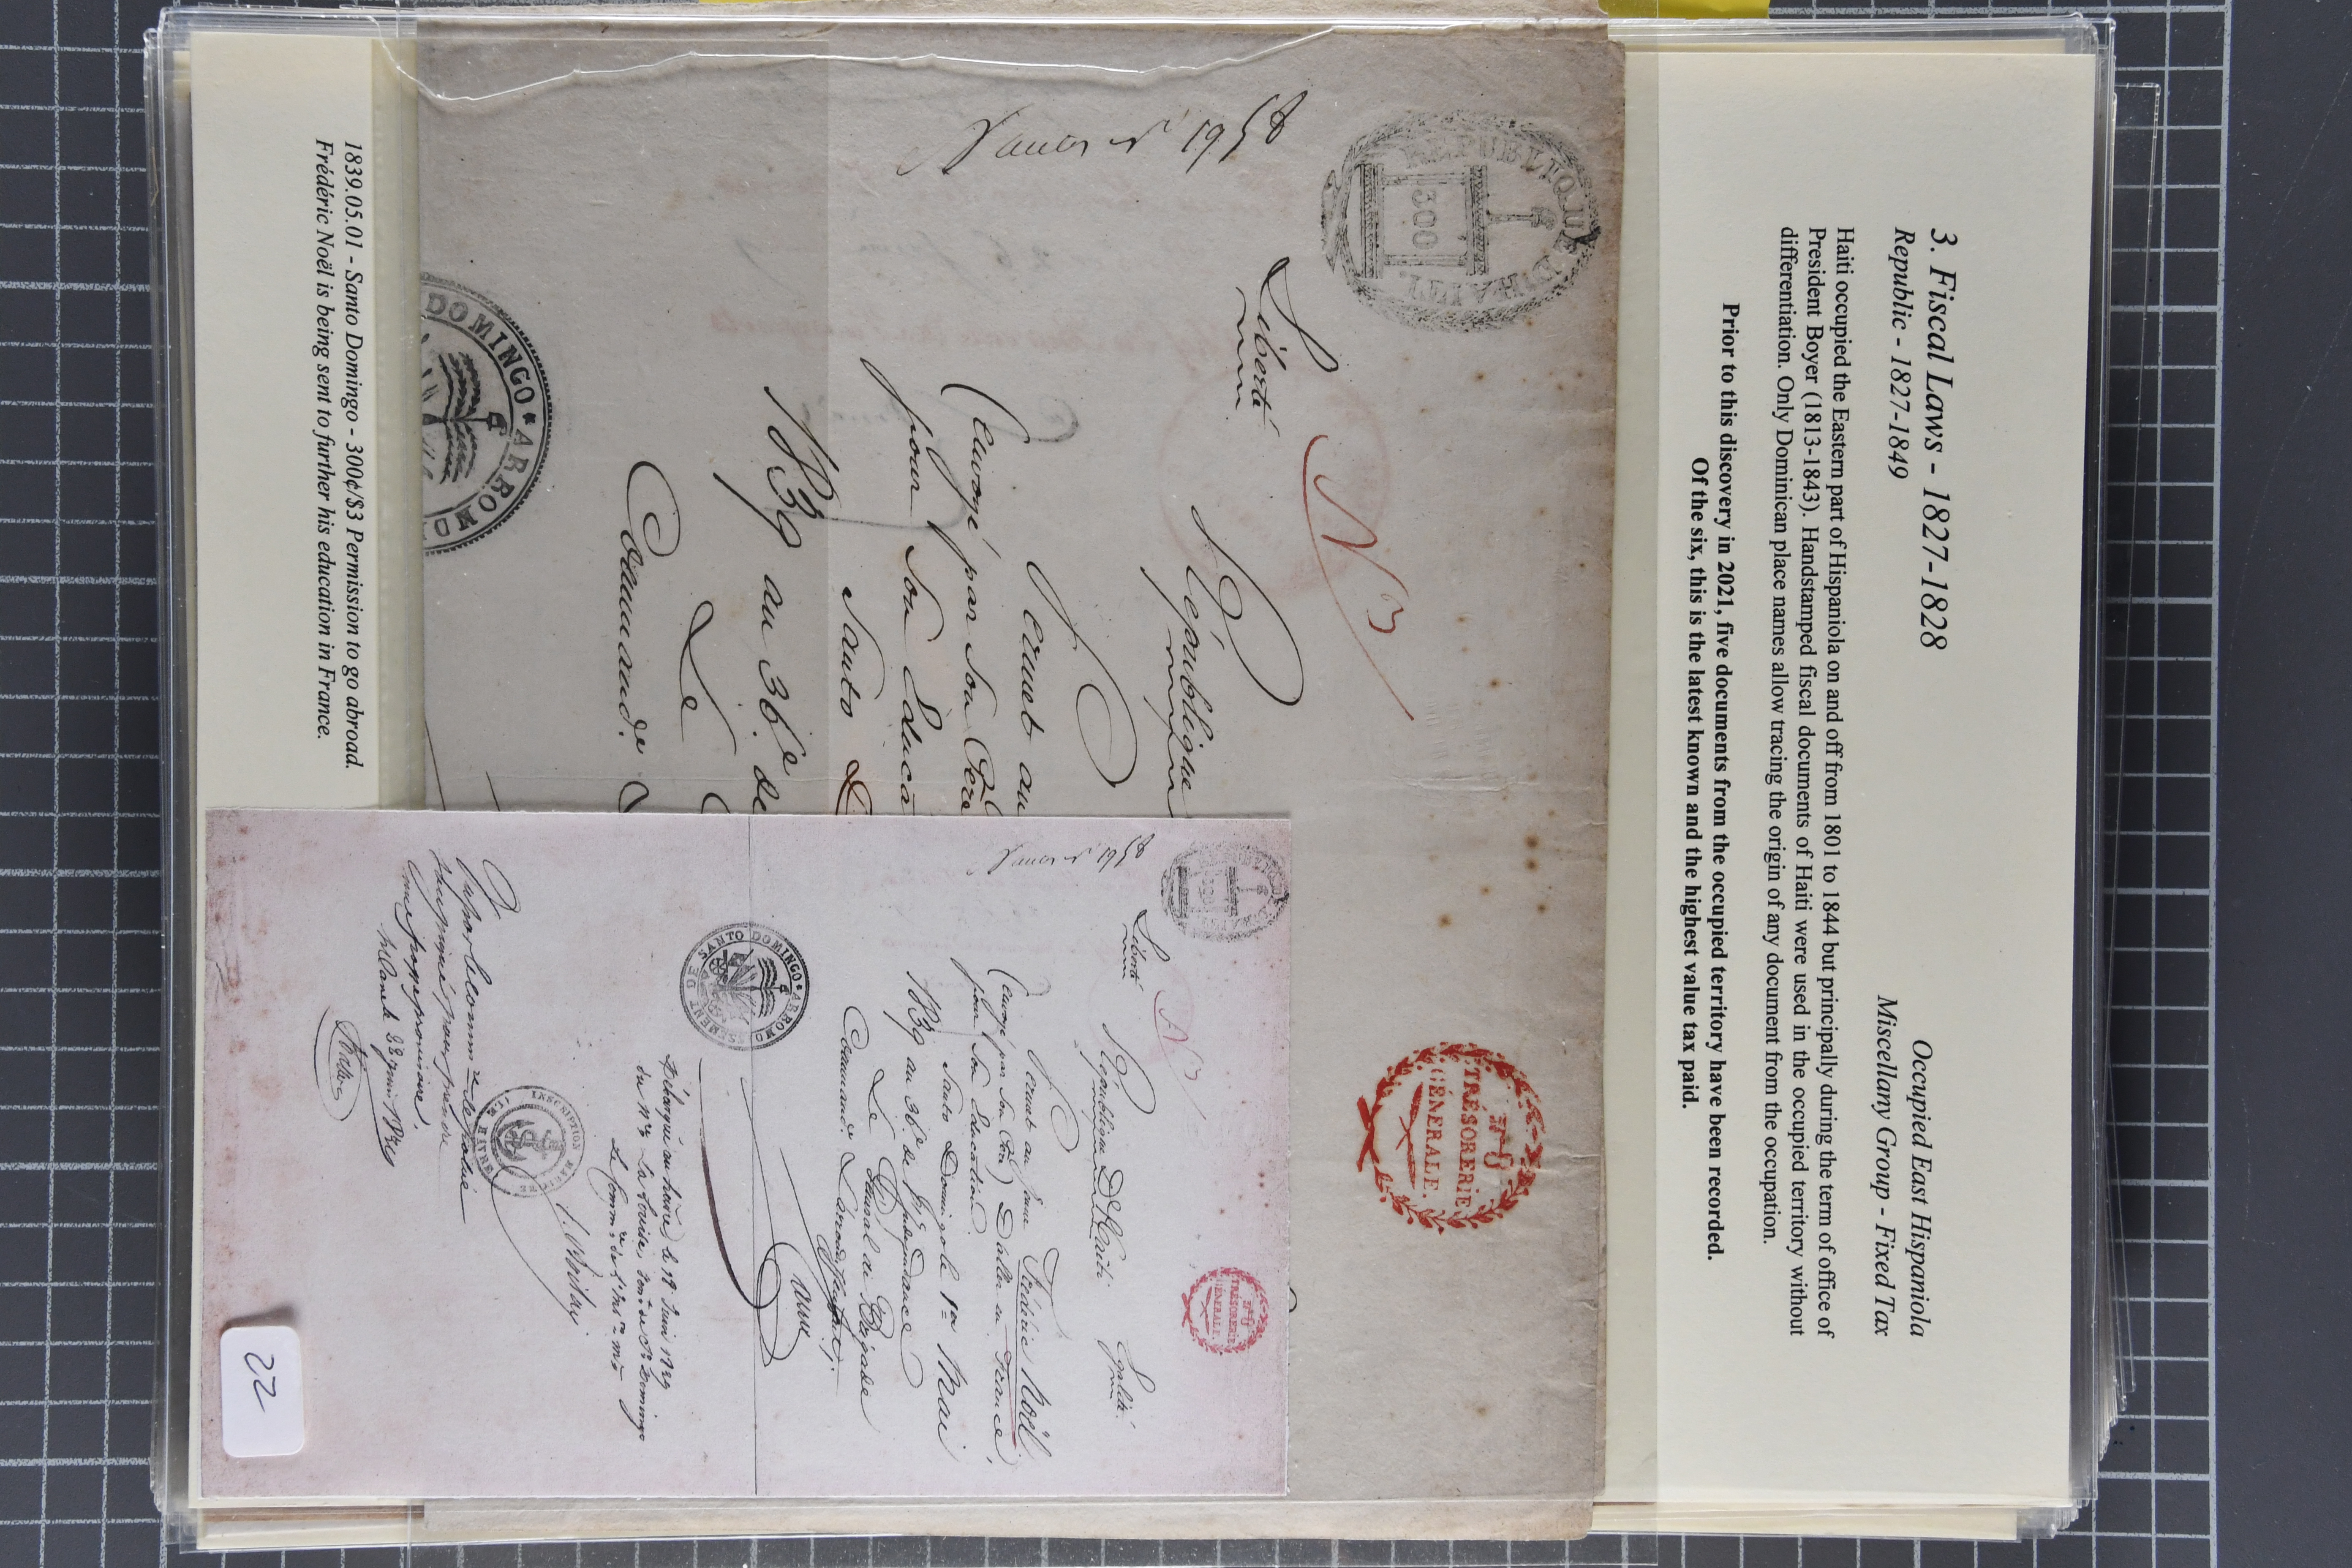 3. Fiscal Laws - 1827-1828
Republic - 1827-1849
Occupied East Hispaniola
Miscellany Group - Fixed Tax
Haiti occupied the Eastern part of Hispaniola on and off from 1801 to 1844 but principally during the term of office of
President Boyer (1813-1843). Handstamped fiscal documents of Haiti were used in the occupied territory without
differentiation. Only Dominican place names allow tracing the origin of any document from the occupation.
Prior to this discovery in 2021, five documents from the occupied territory have been recorded.
Of the six, this is the latest known and the highest value tax paid.
REPUBLIQUE D'HAITI.
300
1958
TRÉSORERIE
GÉNÉRALE.
N 3
Liberté
République
Permet au
(envoyé par son Père
pour son Educa
Santo D
1839 au 36e de
Le
Command.
DOMINGO * ARROND
1958
300
TRÉSORERIE
GÉNÉRALE.
N 3
Liberté République D'Haiti Egalité
Permet au jeune Frédéric Noël
(envoyé par son Père) D'aller en France
pour son Education
Santo Domingo le 1er Mai
1839 au 36e de l'Indépendance
Le Général de Brigade
SANTO DOMINGO * ARRONDISSEMENT DE
Débarqué au havre le 19 Juin 1839
du La Louise, de St Domingo
INSCRIPTION
22
1839.05.01 - Santo Domingo - 300¢/$3 Permission to go abroad.
Frédéric Noël is being sent to further his education in France.